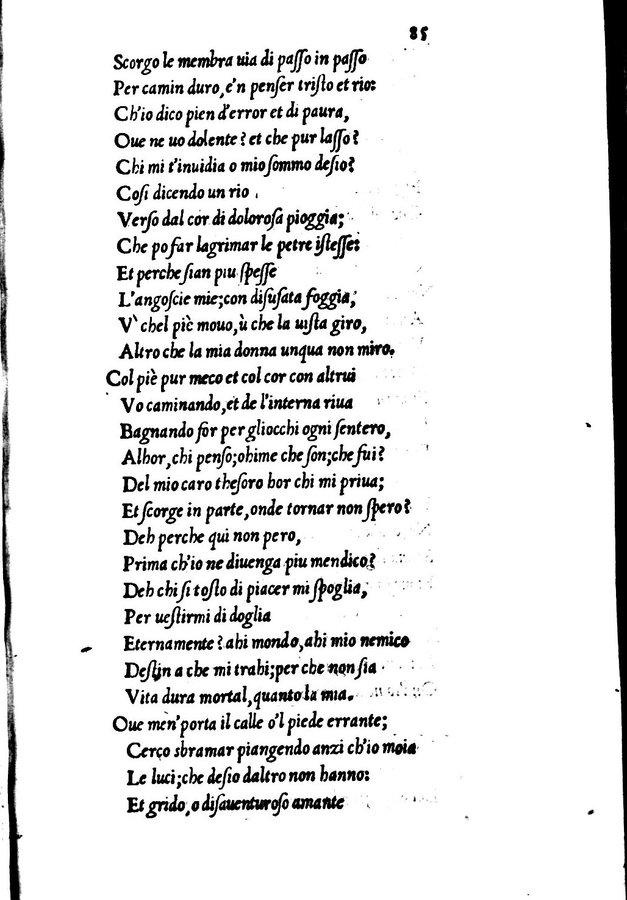 85
Scorgo le membra uia di paſſo in paſſo
Per camin duro, e'n penſer triſto et rio:
Ch'io dico pien d'error et di paura,
Oue ne uo dolente? et che pur laſſo?
Chi mi t'inuidia o mio ſommo deſio?
Coſi dicendo un rio
Verſo dal cor di doloroſa pioggia;
Che po far lagrimar le petre iſteſſe:
Et perche ſian piu ſpeſſe
L'angoſcie mie; con diſuſata foggia;
V` chel piè mouo, ù che la uiſta giro,
Altro che la mia donna unqua non miro.
Col piè pur meco et col cor con altrui
Vo caminando, et de l'interna riua
Bagnando for per gliocchi ogni ſentero,
Alhor, chi penſo; ohime che ſon; che fui?
Del mio caro theſoro hor chi mi priua;
Et ſcorge in parte, onde tornar non ſpero?
Deh perche qui non pero,
Prima ch'io ne diuenga piu mendico?
Deh chi ſi toſto di piacer mi ſpoglia,
Per ueſtirmi di doglia
Eternamente? ahi mondo, ahi mio nemico
Deſtin a che mi trahi; per che non ſia
Vita dura mortal, quanto la mia.
Oue men'porta il calle o'l piede errante;
Cerco sbramar piangendo anzi ch'io moia
Le luci; che deſio daltro non hanno:
Et grido, o diſauenturoſo amante